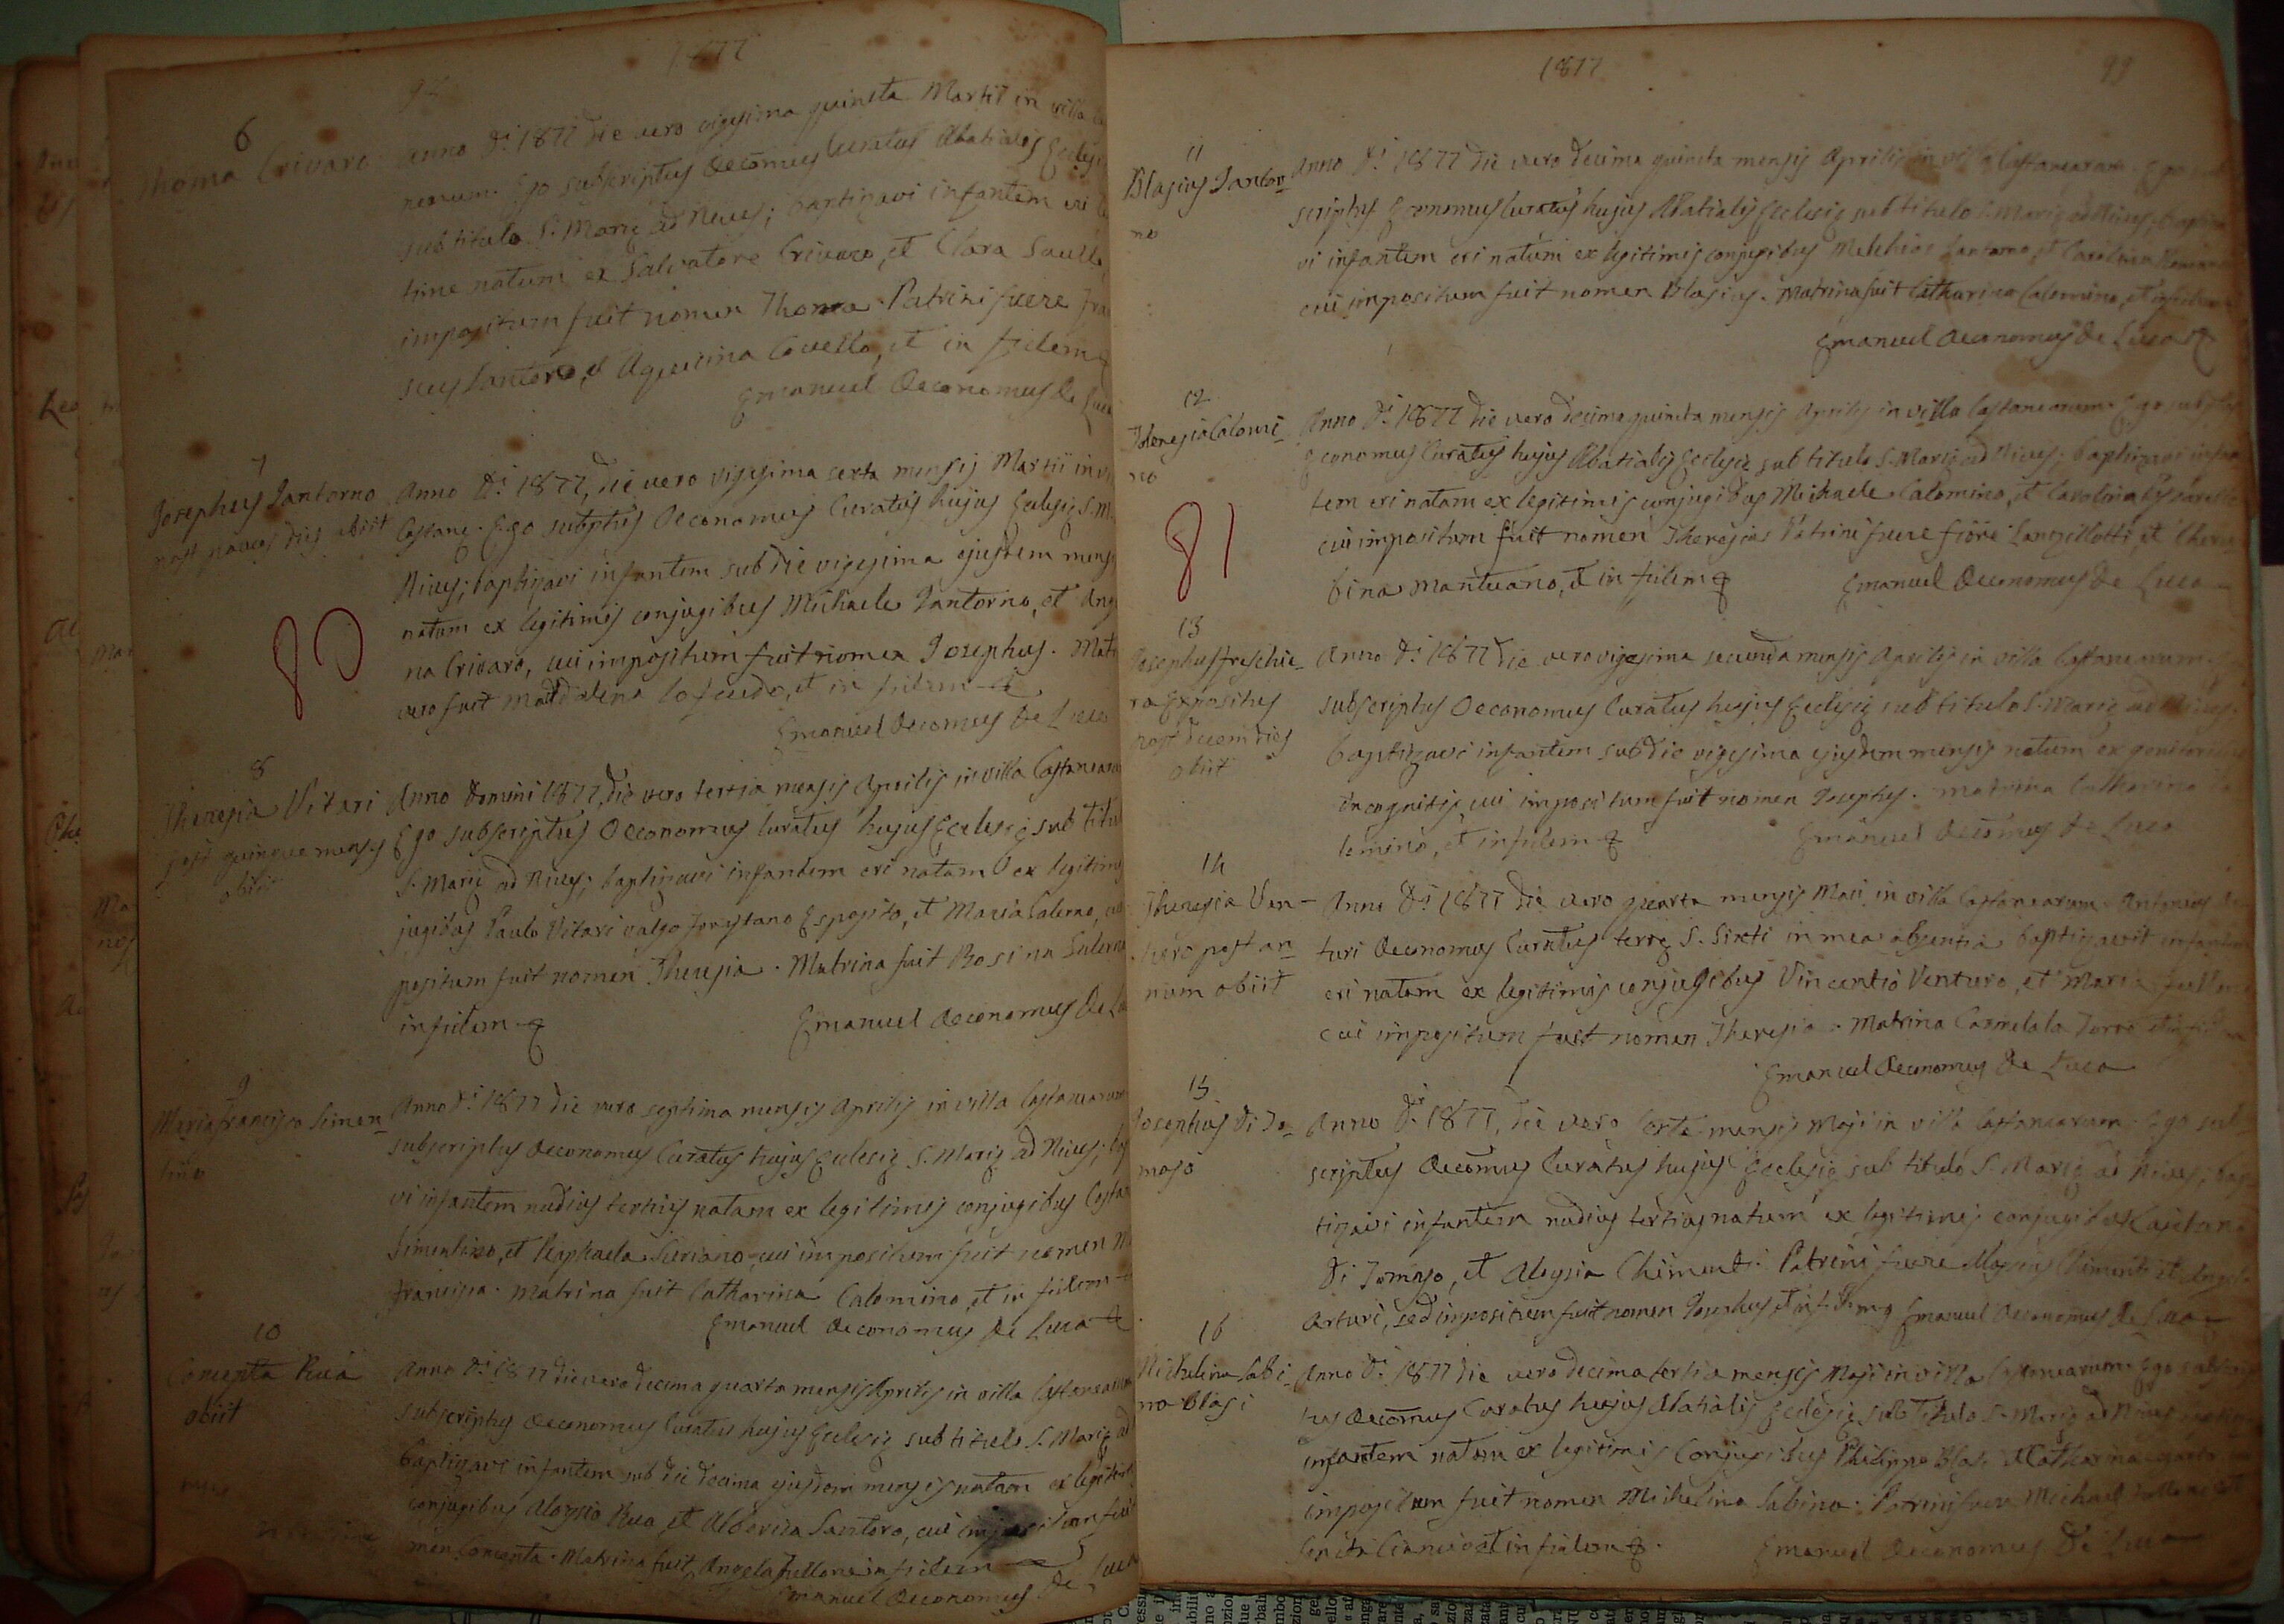 1877
6
Thoma Crivaro
Anno D.i 1877 die vero vigesima quinta Martii in villa
nearum. Ego subscriptus Oecomus Curatus Abatialis Ecclesię
sub titulo S. Marię ad Nives; baptizavi infantem eri
time natum ex Salvatore Crivaro, et Clara Saullo,
impositum fuit nomen Thoma. Patrini fuere
scus Santoro, et Agustina Covello, et in fidem
Emanuel Oeconomus de Luca
7
Josephus Jantorno
post paucos dies obiit
Anno D.i 1877, die vero vigesima sexta mensis Martii in
Castane. Ego subptus Oeconomus Curatus hujus Eclesię S. M.
Nives; baptizavi infantem sub die vigesima ejusdem mensis
natum ex legitimis conjugibus Michaele Jantorno, et Ang
na Crivaro, cui impositum fuit nomen Josephus. Mat
vero fuit Maddalena Lo feudo, et in fidem
Emanuel Oeconomus de Luca
80
8
Theresia Vitari
post quinque menses
obiit
Anno Domini 1877, die vero tertia mensis Aprilis in villa Castanearum
Ego subscriptus Oeconomus Curatus hujus Eclesię sub titulo
S. Marię ad Nives; baptizavi infantem eri natam ex legitimis
jugibus Paulo Vitari vulgo Esposito, et Maria Salerno,
positum fuit nomen Theresia. Matrina fuit Rosina Salerno
in fidem
Emanuel Oeconomus de Lu
9
Maria Francisca Simen-
tino
Anno D.i 1877 die vero septima mensis Aprilis in villa Castanearum
subscriptus Oeconomus Curatus hujus Eclesię S. Marię ad Nives; bap
vi infantem nudius tertius natam ex legitimis conjugibus
Simentino, et Raphaela Suriano, cui impositum fuit nomen M
Francisca. Matrina fuit Catharina Calomino, et in fidem
Emanuel Oeconomus de Luca
10
Concepta Rua
obiit
Anno D.i 1877 die vero decima quarta mensis Aprilis in villa Castanearum
subscriptus Oeconomus Curatus hujus Eclesię sub titulo S. Marię ad
baptizavi infantem sub die decima ejusdem mensis natam ex legitimis
conjugibus Aloysio Rua et Santoro, cui impositum fuit
men Concenta. Matrina fuit Angela Fullone in fidem
Emanuel Oeconomus de Luca
1877
99
11
Blasius Jantor-
no
Anno D.i 1877 die vero decima quinta mensis Aprilis in villa Castanearum. Ego sub
scriptus Economus Curatus hujus Abatialis Eclesię sub titulo S. Marię ad Nives; baptiza
vi infantem eri natum ex legitimis conjugibus Melchior Jantorno, et Carolina
cui impositum fuit nomen Blasius. Matrina fuit Catharina Calomino, et in fidem
Emanuel Oeconomus de Luca
12
Theresia Calomi-
no
Anno D.i 1877 die vero decima quinta mensis Aprilis in villa Castanearum. Ego subptus
Economus Curatus hujus Abatialis Eclesię sub titulo S. Marię ad Nives; baptizavi infan
tem eri natam ex legitimis conjugibus Michaele Calomino, et Carolina
cui impositum fuit nomen Theresia. Patrini fuere Fiore Lanzillotti, et Cheru
bina Mantuano, et in fidem
Emanuel Oeconomus de Luca
81
13
Josephus Freschie-
ra Expositus
post decem dies
obiit
Anno D.i 1877 die vero vigesima secunda mensis Aprilis in villa Castanearum
subscriptus Oeconomus Curatus hujus Eclesię sub titulo S. Marię ad Nives
baptizavi infantem sub die vigesima ejusdem mensis natum ex genitoribus
incognitis, cui impositum fuit nomen Josephus. Matrina Catharina Ca
lomino, et in fidem
Emanuel Oecomus de Luca
14
Theresia Ven-
turo post an-
num obiit
Anno D.i 1877 die vero quarta mensis Maii in villa Castanearum. Antonius
turi Oeconomus Curatus terrę S. Sixti in mea absentia baptizavit infantem
eri natam ex legitimis conjugibus Vincentio Venturo, et Maria Fullone
cui impositum fuit nomen Theresia. Matrina Carmela Lo Torto et in fidem
Emanuel Oeconomus de Luca
15
Josephus Di To-
maso
Anno D.i 1877, die vero sexta mensis Maji in villa Castanearum. Ego sub
scriptus Oecomus Curatus hujus Eclesię sub titulo S. Marię ad Nives; bap
tizavi infantem nudius tertius natum ex legitimis conjugibus Cajetano
Di Tomaso, et Aloysia Chimenti. Patrini fuere Chimenti et Angela
Arturi, sed impositum fuit nomen Josephus, et in fidem Emanuel Oeconomus de Luca
16
Michelina Sabi-
na Blasi
Anno D.i 1877 die vero decima tertia mensis Maji in villa Castanearum. Ego subscrip
tus Oecomus Curatus hujus Abatialis Eclesię sub titulo S. Marię ad Nives baptizavi
infantem natam ex legitimis conjugibus Philippo Blasi et Catharina
impositum fuit nomen Michelina Sabina. Patrini fuere Michael Fullone et
et in fidem
Emanuel Oeconomus de Luca